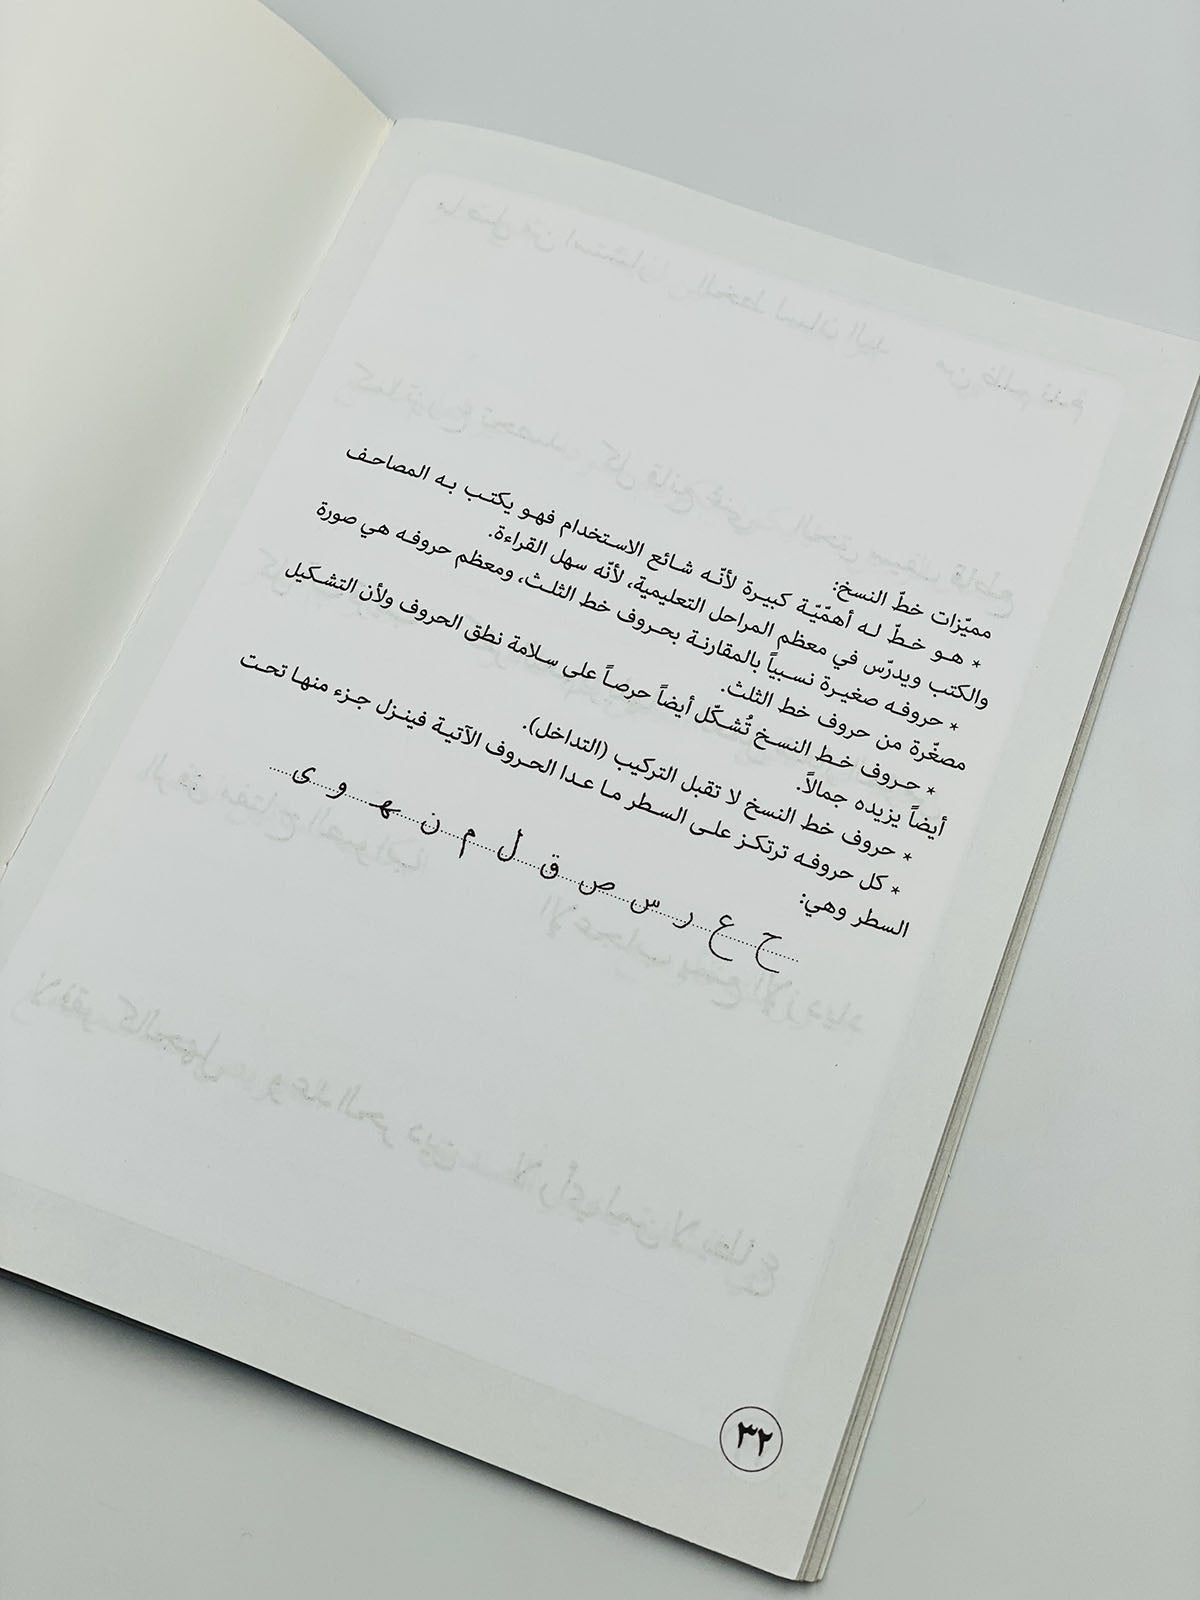 مميّزات خطّ النسخ:
* هـو خـطّ لـه أهمّيّـة كبيـرة لأنّـه شـائع الاسـتخدام فهـو يكتـب بـه المصاحـف
والكتب ويدرّس في معظم المراحل التعليمية، لأنّه سهل القراءة.
* حروفـه صغيـرة نسـبياً بالمقارنـة بحـروف خط الثلـث، ومعظم حروفـه هي صورة
مصغّرة من حروف خط الثلث.
* حـروف خـط النسـخ تُشـكّل أيضـاً حرصـاً على سـلامة نطق الحروف ولأن التشـكيل
أيضاً يزيده جمالاً.
* حروف خط النسخ لا تقبل التركيب (التداخل).
* كل حروفـه ترتكـز علـى السـطر مـا عـدا الحـروف الآتيـة فينـزل جـزء منهـا تحـت
السطر وهي:
ح ع ر س ص ق ل م ن ه و ى
٣٢